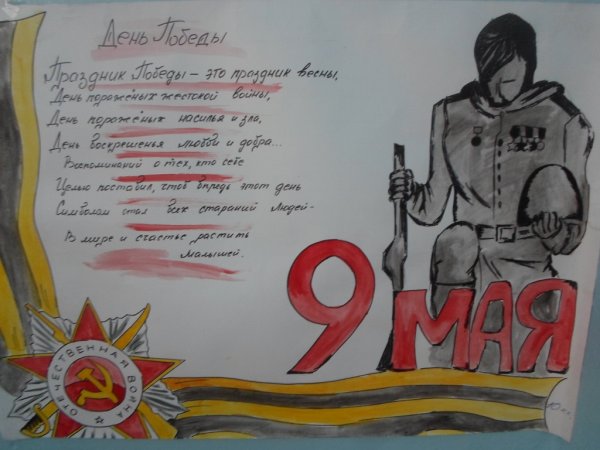 День Победы
Праздник Победы – это праздник весны,
День поражёных жестокой войны,
День поражёных насилья и зла,
День воскрешенья любви и добра...
Воспоминаний о тех, кто себе
Целью поставил, чтоб впредь этот день
Символом стал всех стараний людей-
В мире и счастье растить
малышей.
9 МАЯ
ОТЕЧЕСТВЕННАЯ ВОЙНА